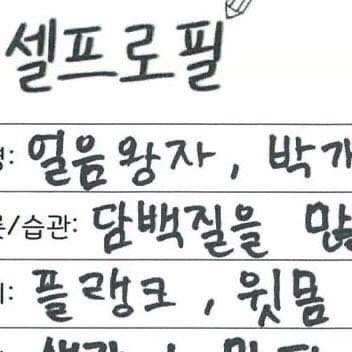 셀프로필
: 얼음왕자, 박
/습관: 담백질을
: 플랭크, 윗몸